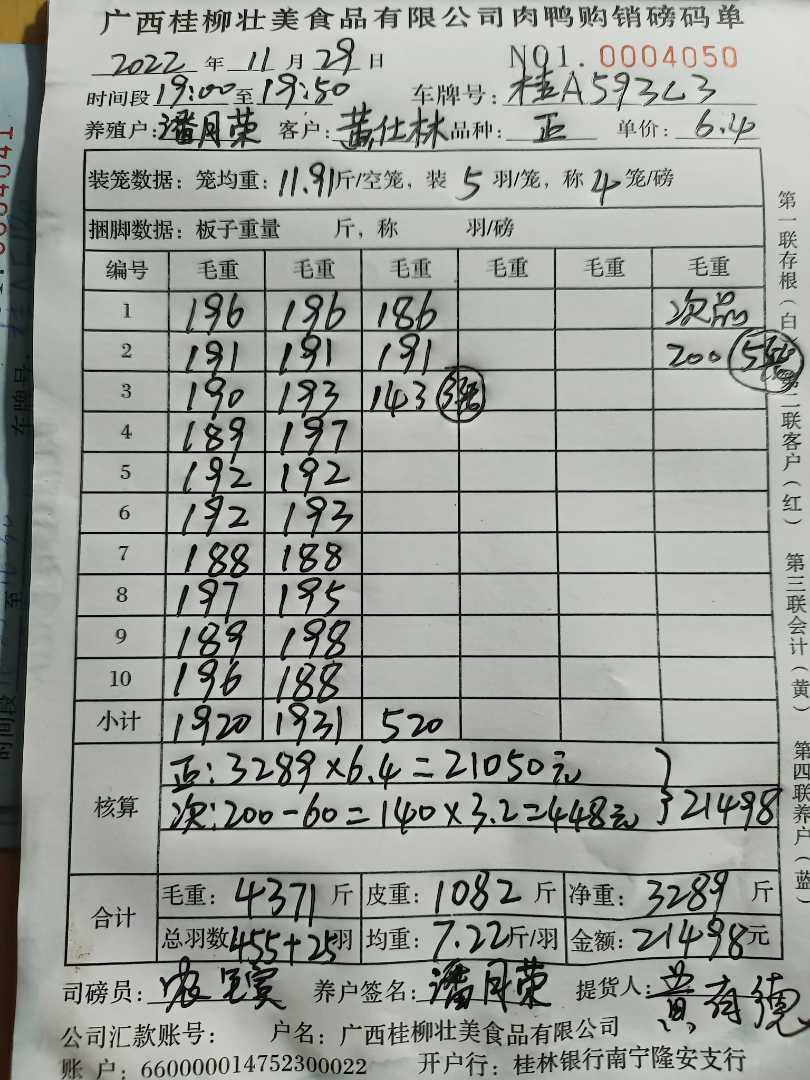 广西桂柳壮美食品有限公司肉鸭购销磅码单
2022 年 11 月 29 日 NO1. 0004050
时间段 19:00 至 19:50 车牌号: 桂A593L3
养殖户: 潘月荣 客户: 黄仕林 品种: 正 单价: 6.4
装笼数据: 笼均重: 11.91 斤/空笼, 装 5 羽/笼, 称 4 笼/磅
捆脚数据: 板子重量 斤, 称 羽/磅
编号 毛重 毛重 毛重 毛重 毛重 毛重
1 196 196 186 次品
2 191 191 191 200
3 190 193 143
4 189 197
5 192 192
6 192 193
7 188 188
8 197 195
9 189 198
10 196 188
小计 1920 1931 520
核算
正: 3289×6.4=21050元
次: 200-60=140×3.2=448元 } 21498
合计
毛重: 4371 斤 皮重: 1082 斤 净重: 3289 斤
总羽数 455+25 羽 均重: 7.22 斤/羽 金额: 21498 元
司磅员: 养户签名: 潘月荣 提货人:
公司汇款账号: 户名: 广西桂柳壮美食品有限公司
账 户: 660000014752300022 开户行: 桂林银行南宁隆安支行
第一联存根(白) 第二联客户(红) 第三联会计(黄) 第四联养户(蓝)
0004041
车牌号:
至
时间段